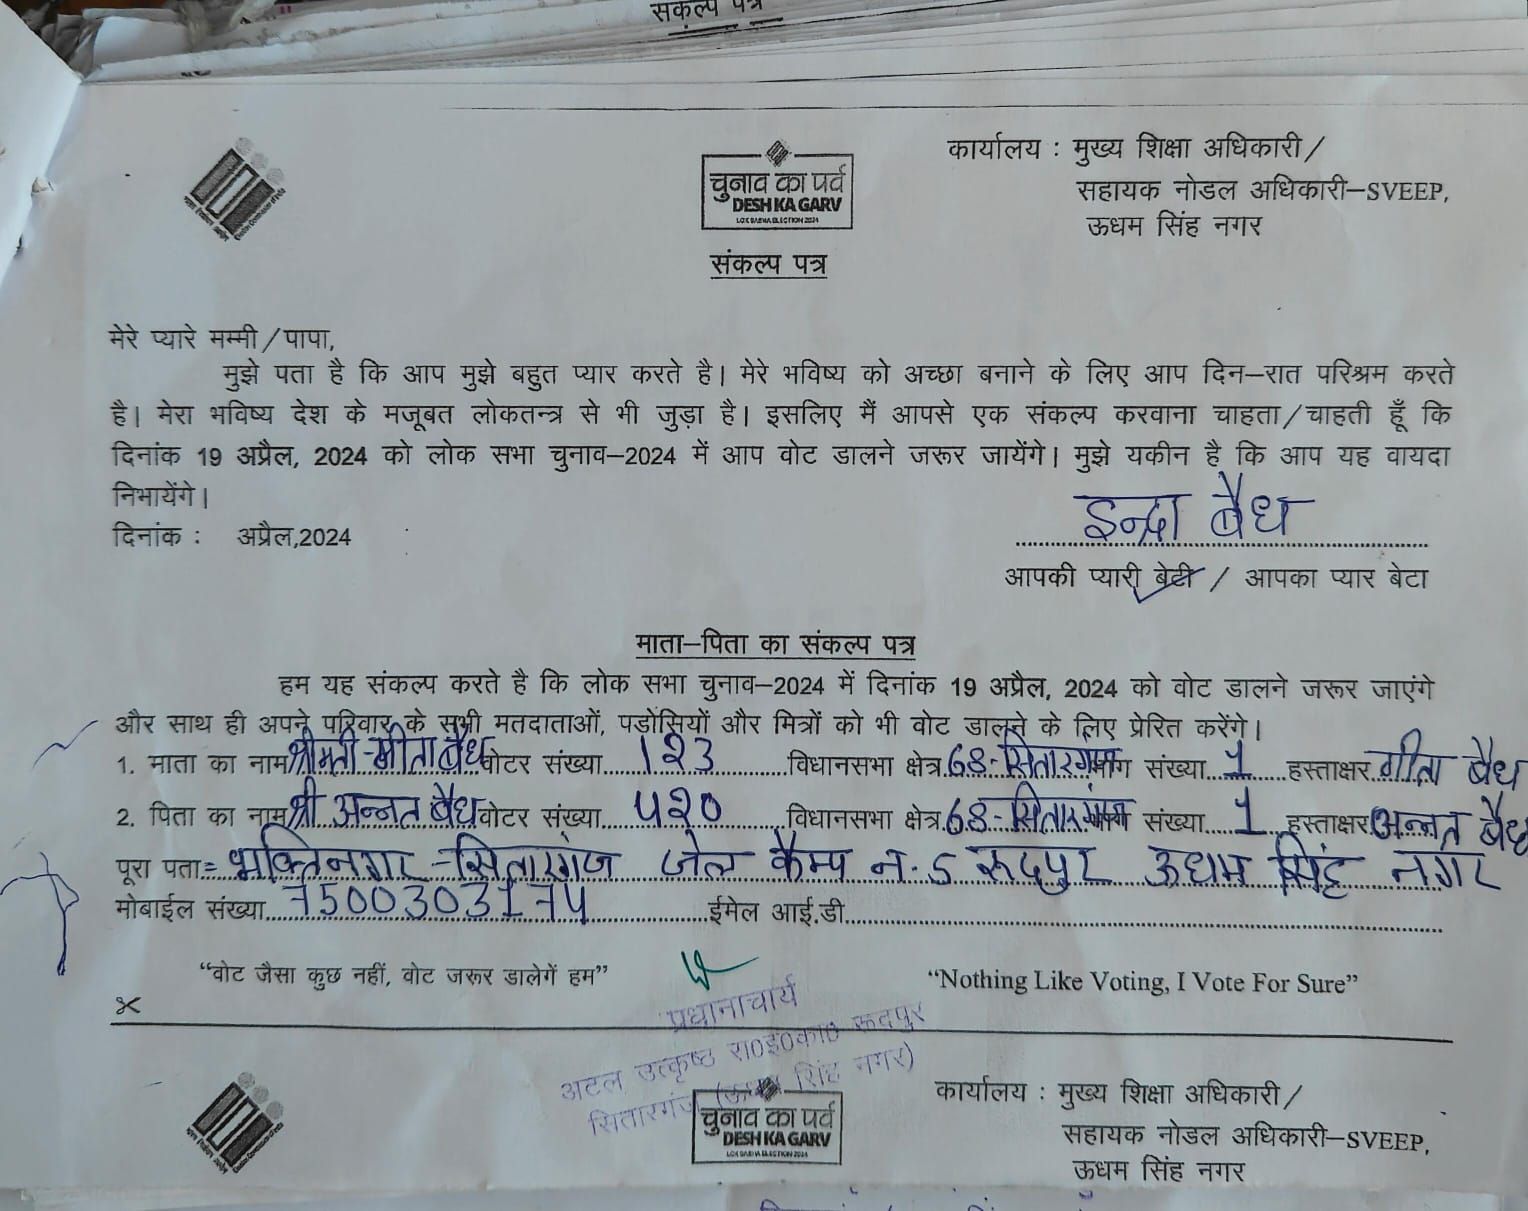 संकल्प पत्र
कार्यालय : मुख्य शिक्षा अधिकारी/
सहायक नोडल अधिकारी–SVEEP,
ऊधम सिंह नगर
चुनाव का पर्व
DESH KA GARV
LOK SABHA ELECTION 2024
संकल्प पत्र
मेरे प्यारे मम्मी/पापा,
मुझे पता है कि आप मुझे बहुत प्यार करते है। मेरे भविष्य को अच्छा बनाने के लिए आप दिन–रात परिश्रम करते
है। मेरा भविष्य देश के मजूबत लोकतन्त्र से भी जुड़ा है। इसलिए मैं आपसे एक संकल्प करवाना चाहता/चाहती हूँ कि
दिनांक 19 अप्रैल, 2024 को लोक सभा चुनाव–2024 में आप वोट डालने जरूर जायेंगे। मुझे यकीन है कि आप यह वायदा
निभायेंगे।
दिनांक : अप्रैल,2024
इन्द्रा बैध
आपकी प्यारी बेटी / आपका प्यार बेटा
माता–पिता का संकल्प पत्र
हम यह संकल्प करते है कि लोक सभा चुनाव–2024 में दिनांक 19 अप्रैल, 2024 को वोट डालने जरूर जाएंगे
और साथ ही अपने परिवार के सभी मतदाताओं, पड़ोसियों और मित्रों को भी वोट डालने के लिए प्रेरित करेंगे।
1. माता का नाम श्रीमती गीता बैध वोटर संख्या 123 विधानसभा क्षेत्र 68-सितारगंज भाग संख्या 1 हस्ताक्षर गीता बैध
2. पिता का नाम श्री अन्नत बैध वोटर संख्या ५२० विधानसभा क्षेत्र 68-सितारगंज संख्या 1 हस्ताक्षर अन्नत बैध
पूरा पता भक्तिनगर -सितारगंज जेल कैम्प न. 5 रूदपुर ऊधम सिंह नगर
मोबाईल संख्या 7500303174 ईमेल आई.डी
“वोट जैसा कुछ नहीं, वोट जरूर डालेगें हम” “Nothing Like Voting, I Vote For Sure”
प्रधानाचार्य
अटल उत्कृष्ठ रा0इ0का0 रूदपुर
सितारगंज (ऊधम सिंह नगर)
कार्यालय : मुख्य शिक्षा अधिकारी/
सहायक नोडल अधिकारी–SVEEP,
ऊधम सिंह नगर
चुनाव का पर्व
DESH KA GARV
LOK SABHA ELECTION 2024